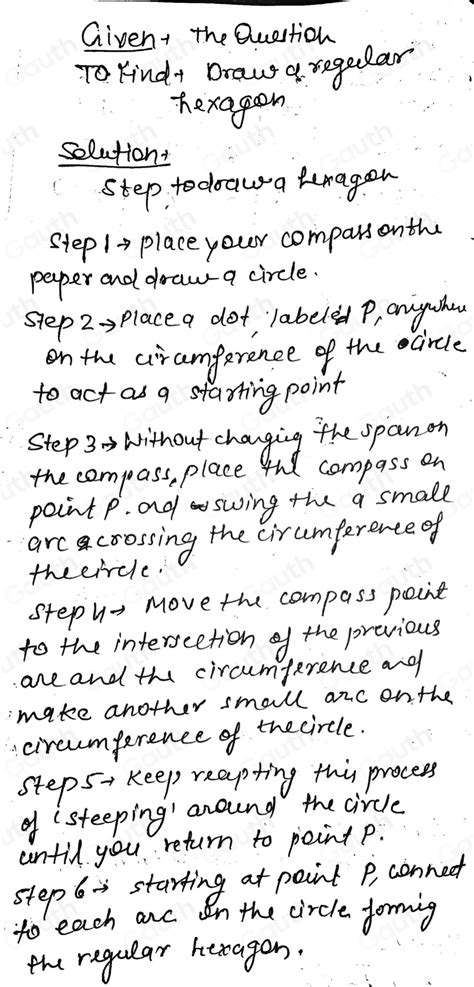 Given→ The Question
To Find→ Draw a regular
hexagon
Solution→
Step to draw a hexagon
Step 1→ place your compass on the
paper and draw a circle.
Step 2→ Place a dot, labeled P, anywhere
on the circumference of the circle
to act as a starting point
Step 3→ Without changing the span on
the compass, place the compass on
point P. and swing the a small
arc acrossing the circumference of
the circle.
Step 4→ Move the compass point
to the intersection of the previous
arc and the circumference and
make another small arc on the
circumference of the circle.
Step 5→ Keep reapting this process
of 'steeping' around the circle
until you return to point P.
Step 6→ starting at point P, connect
to each arc on the circle formig
the regular hexagon.